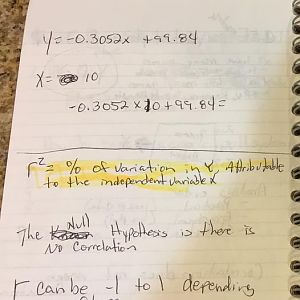 Y = -0.3052x + 99.84
X = 10
-0.3052 x 10 + 99.84 =
r² = % of variation in Y, Attributable
to the independent variable X
The Null Hypothesis is there is
No Correlation
r can be -1 to 1 depending